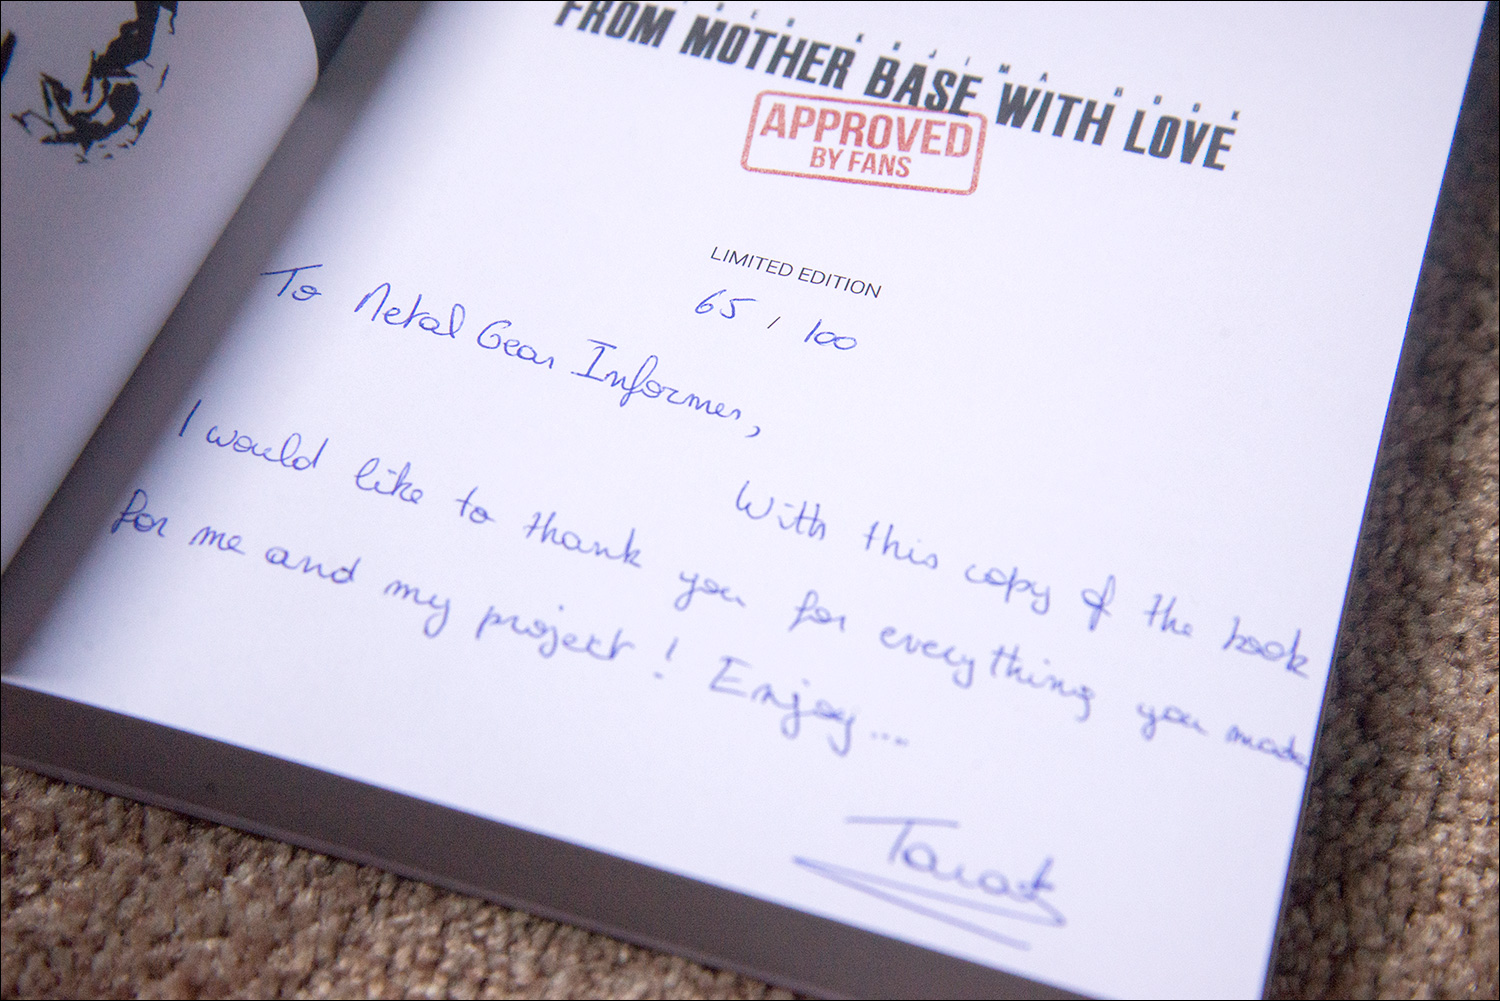 FROM MOTHER BASE WITH LOVE
APPROVED
BY FANS
LIMITED EDITION
65 / 100
To Metal Gear Informer,
With this copy of the book
I would like to thank you for everything you made
for me and my project ! Enjoy...
Tarak